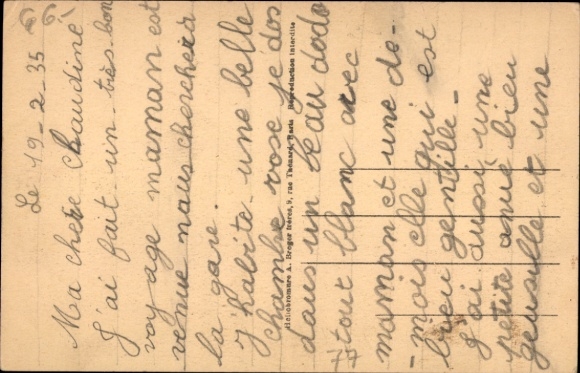 Le 19-2-35
Ma chere Claudine
J'ai fait un très bon
voyage maman est
venue nous chercher à
la gare.
J'habite une belle
chambre rose je dos
dans un beau dodo
tout blanc avec
maman et une de-
-moiselle qui est
bien gentille-
J'ai aussi une
petite amie bien
gensille et une
Heliotromare A. Breger frères, 9, rue Thénard, Paris Reproduction interdite
77